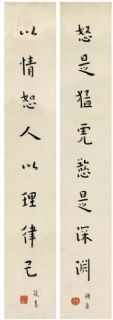 怒是猛虎慾是深淵
以情恕人以理律己